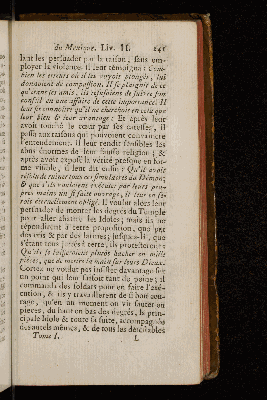 du Mexique. Liv. II. 241
lant les persuader par la raison, sans em-
ployer la violence. Il leur témoigna : Com-
bien les erreurs où il les voyoit plongés, lui
donnoient de compassion. Il se plaignit de ce
qu'étant ses amis, ils refusoient de suivre son
conseil en une affaire de cette importance: Il
leur fit connoître qu'il ne cherchoit en cela que
leur bien & leur avantage: Et après leur
avoir touché le cœur par ses caresses, il
passa aux raisons qui pouvoient convaincre
l'entendement. Il leur rendit sensibles les
abus énormes de leur fausse religion; &
après avoir exposé la vérité presque en for-
me visible, il leur dit enfin: Qu'il avoit
résolu de ruiner tous ces simulacres du Démon;
& que s'ils vouloient exécuter par leurs pro-
pres mains un si juste ouvrage, il leur en se-
roit éternellement obligé. Il voulut alors leur
persuader de monter les degrés du Temple
pour aller abattre les Idoles; mais ils ne
répondirent à cette proposition, que par
des cris & par des larmes; jusques-là, que
s'étant tous jettés à terre, ils protesterent
Qu'ils se laisseroient plutôt hacher en mille
piéces, que de mettre la main sur leurs Dieux.
Cortez ne voulut pas insister davantage sur
un point qui leur faisoit tant de peine; il
commanda des soldats pour en faire l'exé-
cution, & ils y travaillerent de si bon cou-
rage, qu'en un moment on vit sauter en
piéces, du haut en bas des degrés, la prin-
cipale Idole & toute sa suite, accompagnée
des autels mêmes, & de tous les détestables
Tome I. L